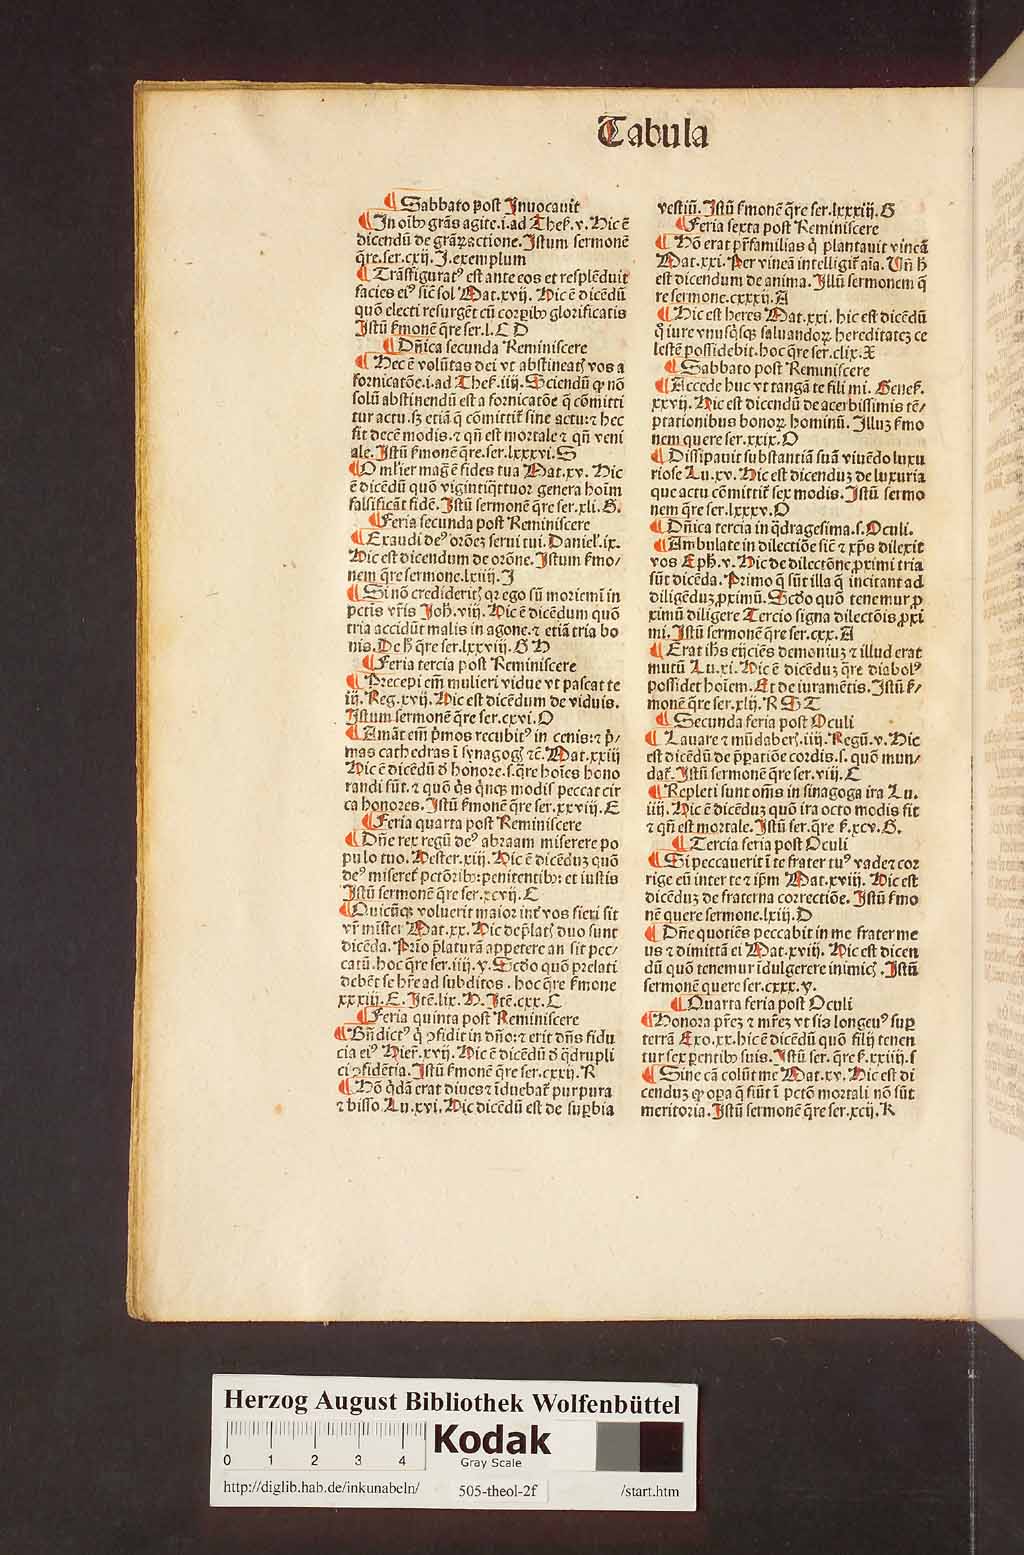 Tabula
¶ Sabbato post Inuocauit
¶ In oībꝰ grās agite.i.ad Thes̄.v. Hic ē
dicendū de grāꝝactione. Istum sermonē
q̄re.ser.cxij. J.exemplum
¶ Trāsfiguratꝰ est ante eos et resplēduit
facies eiꝰ sic̄ sol Mat.xvij. Hic ē dicēdū
quō electi resurgēt cū corꝑibꝰ glorificatis
Istū s̄monē q̄re ser.l. C D
¶ Dn̄ica secunda Reminiscere
¶ Hec ē volūtas dei vt abstineatꝭ vos a
fornicatōe.i.ad Thes̄.iiij. Sciendū ꝙ nō
solū abstinendū est a fornicatōe q̄ cōmitti
tur actu.sꝫ etiā q̄ cōmittit̄ sine actu:⁊ hec
fit decē modis.⁊ qn̄ est mortale ⁊ qn̄ veni
ale. Istū s̄monē q̄re.ser.lxxxvi. S
¶ O ml̄ier maḡ ē fides tua Mat.xv. Hic
ē dicēdū quō vigintiq̄ttuor genera hoīm
falsificāt fidē. Istū sermonē q̄re ser.xli. G.
¶ Feria secunda post Reminiscere
¶ Exaudi deꝰ orōeꝫ serui tui. Daniel̄.ix.
Hic est dicendum de orōne. Istum s̄mo/
nem q̄re sermone.lxiiij. J
¶ Si nō credideritꝭ qꝛ ego sū moriemī in
pctīs vr̄is Joh̄.viij. Hic ē dicēdum quō
tria accidūt malis in agone.⁊ etiā tria bo
nis. De h̄ q̄re ser.lxxviij. G H
¶ Feria tercia post Reminiscere
¶ Precepi em̄ mulieri vidue vt pascat te
iij. Reg.xvij. Hic est dicēdum de viduis.
Istum sermonē q̄re ser.cxvi. O
¶ Amāt em̄ pͥmos recubitꝰ in cenis:⁊ pͥ/
mas cathedras ī synagogꝭ ⁊c̄. Mat.xxiij
Hic ē dicēdū ð honore.s.q̄re hoīes hono
randi sūt.⁊ quō qͥs qͥncqꝫ modis peccat cir
ca honores. Istū s̄monē q̄re ser.xxviij. E
¶ Feria quarta post Reminiscere
¶ Dn̄e rex regū deꝰ abraam miserere po
pulo tuo. Hester.xiij. Hic ē dicēduꝫ quō
deꝰ miseret̄ pctōribꝰ:penitentibꝰ: et iustis
Istū sermonē q̄re ser.xcvij. C
¶ Quicūqꝫ voluerit maior int̄ vos fieri sit
vr̄ mīster Mat.xx. Hic de p̄latꝭ duo sunt
dicēda. Prīo p̄laturā appetere an sit pec/
catū.hoc q̄re ser.iiij. v. Scd̄o quō prelati
debēt se hr̄e ad subditos. hoc q̄re s̄mone
xxxiij. E. Itē.lix. H. Itē.cxx. C
¶ Feria quinta post Reminiscere
¶ Bn̄dictꝰ qͥ ꝯfidit in dn̄o:⁊ erit dn̄s fidu
cia eiꝰ Hier̄.xvij. Hic ē dicēdū ð q̄drupli
ci ꝯfidētia. Istū s̄monē q̄re ser.cxxij. R
¶ Hō qͥdā erat diues ⁊ īduebat̄ purpura
⁊ bisso Lu.xvi. Hic dicēdū est de suꝑbia
vestiū. Istū s̄monē q̄re ser.lxxxiij. G
¶ Feria sexta post Reminiscere
¶ Hō erat pr̄familias qͥ plantauit vineā
Mat.xxi. Per vineā intelligit̄ aīa. Vn̄ h̄
est dicendum de anima. Illū sermonem q̄
re sermone.cxxxij. A
¶ Hic est heres Mat.xxi. hic est dicēdū
q̄ iure vnusqͥsqꝫ saluandoꝝ hereditateꝫ ce
lestē possidebit.hoc q̄re ser.clix. X
¶ Sabbato post Reminiscere
¶ Accede huc vt tangā te fili mi. Genes̄.
xxvij. Hic est dicendū de acerbissimis tē/
ptationibus bonoꝝ hominū. Illuꝫ s̄mo
nem quere ser.xxix. O
¶ Dissipauit substantiā suā viuēdo luxu
riose Lu.xv. Hic est dicenduꝫ de luxuria
que actu cōmittit̄ sex modis. Istū sermo
nem q̄re ser.lxxxv. O
¶ Dn̄ica tercia in q̄dragesima.s. Oculi.
¶ Ambulate in dilectiōe sic̄ ⁊ xp̄s dilexit
vos Eph̄.v. Hic de dilectōne ꝓximi tria
sūt dicēda. Primo q̄ sūt illa q̄ incitant ad
diligēduꝫ ꝓximū. Scd̄o quō tenemur ꝓ
ximū diligere Tercio signa dilectōis ꝓxi
mi. Istū sermonē q̄re ser.cxx. A
¶ Erat ih̄s eijciēs demoniuꝫ ⁊ illud erat
mutū Lu.xi. Hic ē dicēduꝫ q̄re diabolꝰ
possidet hoīem. Et de iuramētis. Istū s̄/
monē q̄re ser.xlij. R S T
¶ Secunda feria post Oculi
¶ Lauare ⁊ mūdaberꝭ.iiij. Regū.v. Hic
est dicēdū de p̄patiōe cordis.s. quō mun/
dat̄. Istū sermonē q̄re ser.viij. C
¶ Repleti sunt om̄s in sinagoga ira Lu.
iiij. Hic ē dicēduꝫ quō ira octo modis fit
⁊ qn̄ est mortale. Istū ser.q̄re s̄.xcv. G.
¶ Tercia feria post Oculi
¶ Si peccauerit ī te frater tuꝰ vade ⁊ cor
rige eū inter te ⁊ ip̄m Mat.xviij. Hic est
dicēduꝫ de fraterna correctiōe. Istū s̄mo
nē quere sermone.lxiij. D
¶ Dn̄e quotiēs peccabit in me frater me
us ⁊ dimittā ei Mat.xviij. Hic est dicen
dū quō tenemur īdulgerere inimicꝭ. Istū
sermonē quere ser.cxxx. v.
¶ Quarta feria post Oculi
¶ Honora pr̄eꝫ ⁊ mr̄eꝫ vt sis longeuꝰ suꝑ
terrā Exo.xx. hic ē dicēdū quō filij tenen
tur sex ꝑentibꝰ suis. Istū ser. q̄re s̄.xxiiij. f
¶ Sine cā colūt me Mat.xv. Hic est di
cenduꝫ ꝙ oꝑa q̄ fiūt ī pctō mortali nō sūt
meritoria. Istū sermonē q̄re ser.xcij. K
Herzog August Bibliothek Wolfenbüttel
0 1 2 3 4
Kodak
Gray Scale
http://diglib.hab.de/inkunabeln/ 505-theol-2f /start.htm